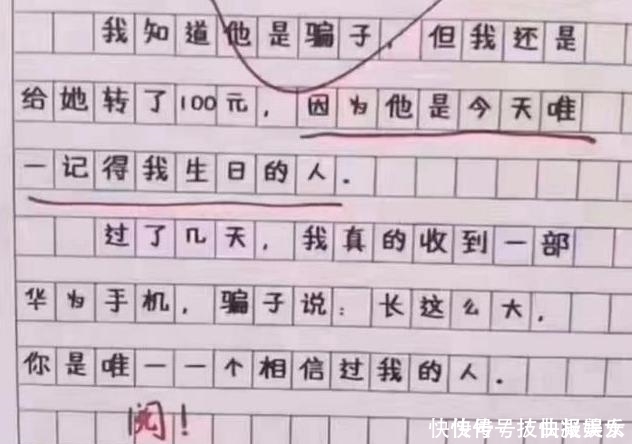 我知道他是骗子，但我还是
给她转了100元，因为他是今天唯
一记得我生日的人.
过了几天，我真的收到一部
华为手机，骗子说：长这么大，
你是唯一一个相信过我的人.
阅!